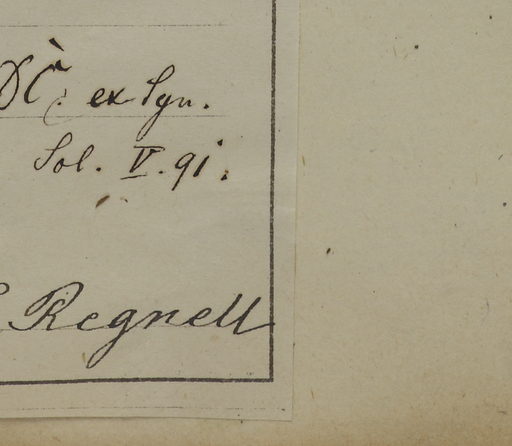 DC. ex Syn.
Sol. V. 91.
Regnell